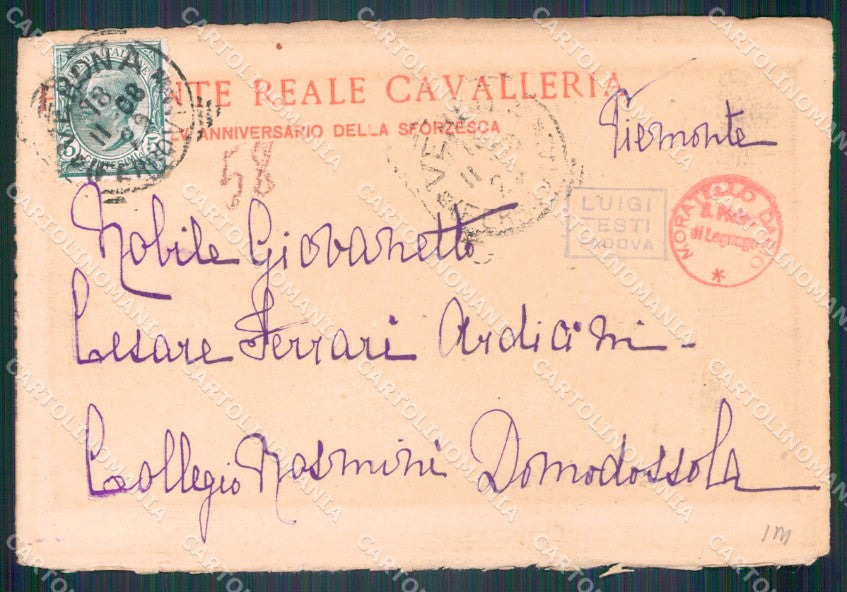 NTE REALE CAVALLERIA
LV ANNIVERSARIO DELLA SFORZESCA
VERONA
18
11
08
58
Piemonte
LUIGI
TESTI
PADOVA
MORATELLO
S. Pietro
di Legnago
*
Nobile Giovanetto
Cesare Ferrari Ardicini -
Collegio Rosmini Domodossola
1M
CARTOLINOMANIA